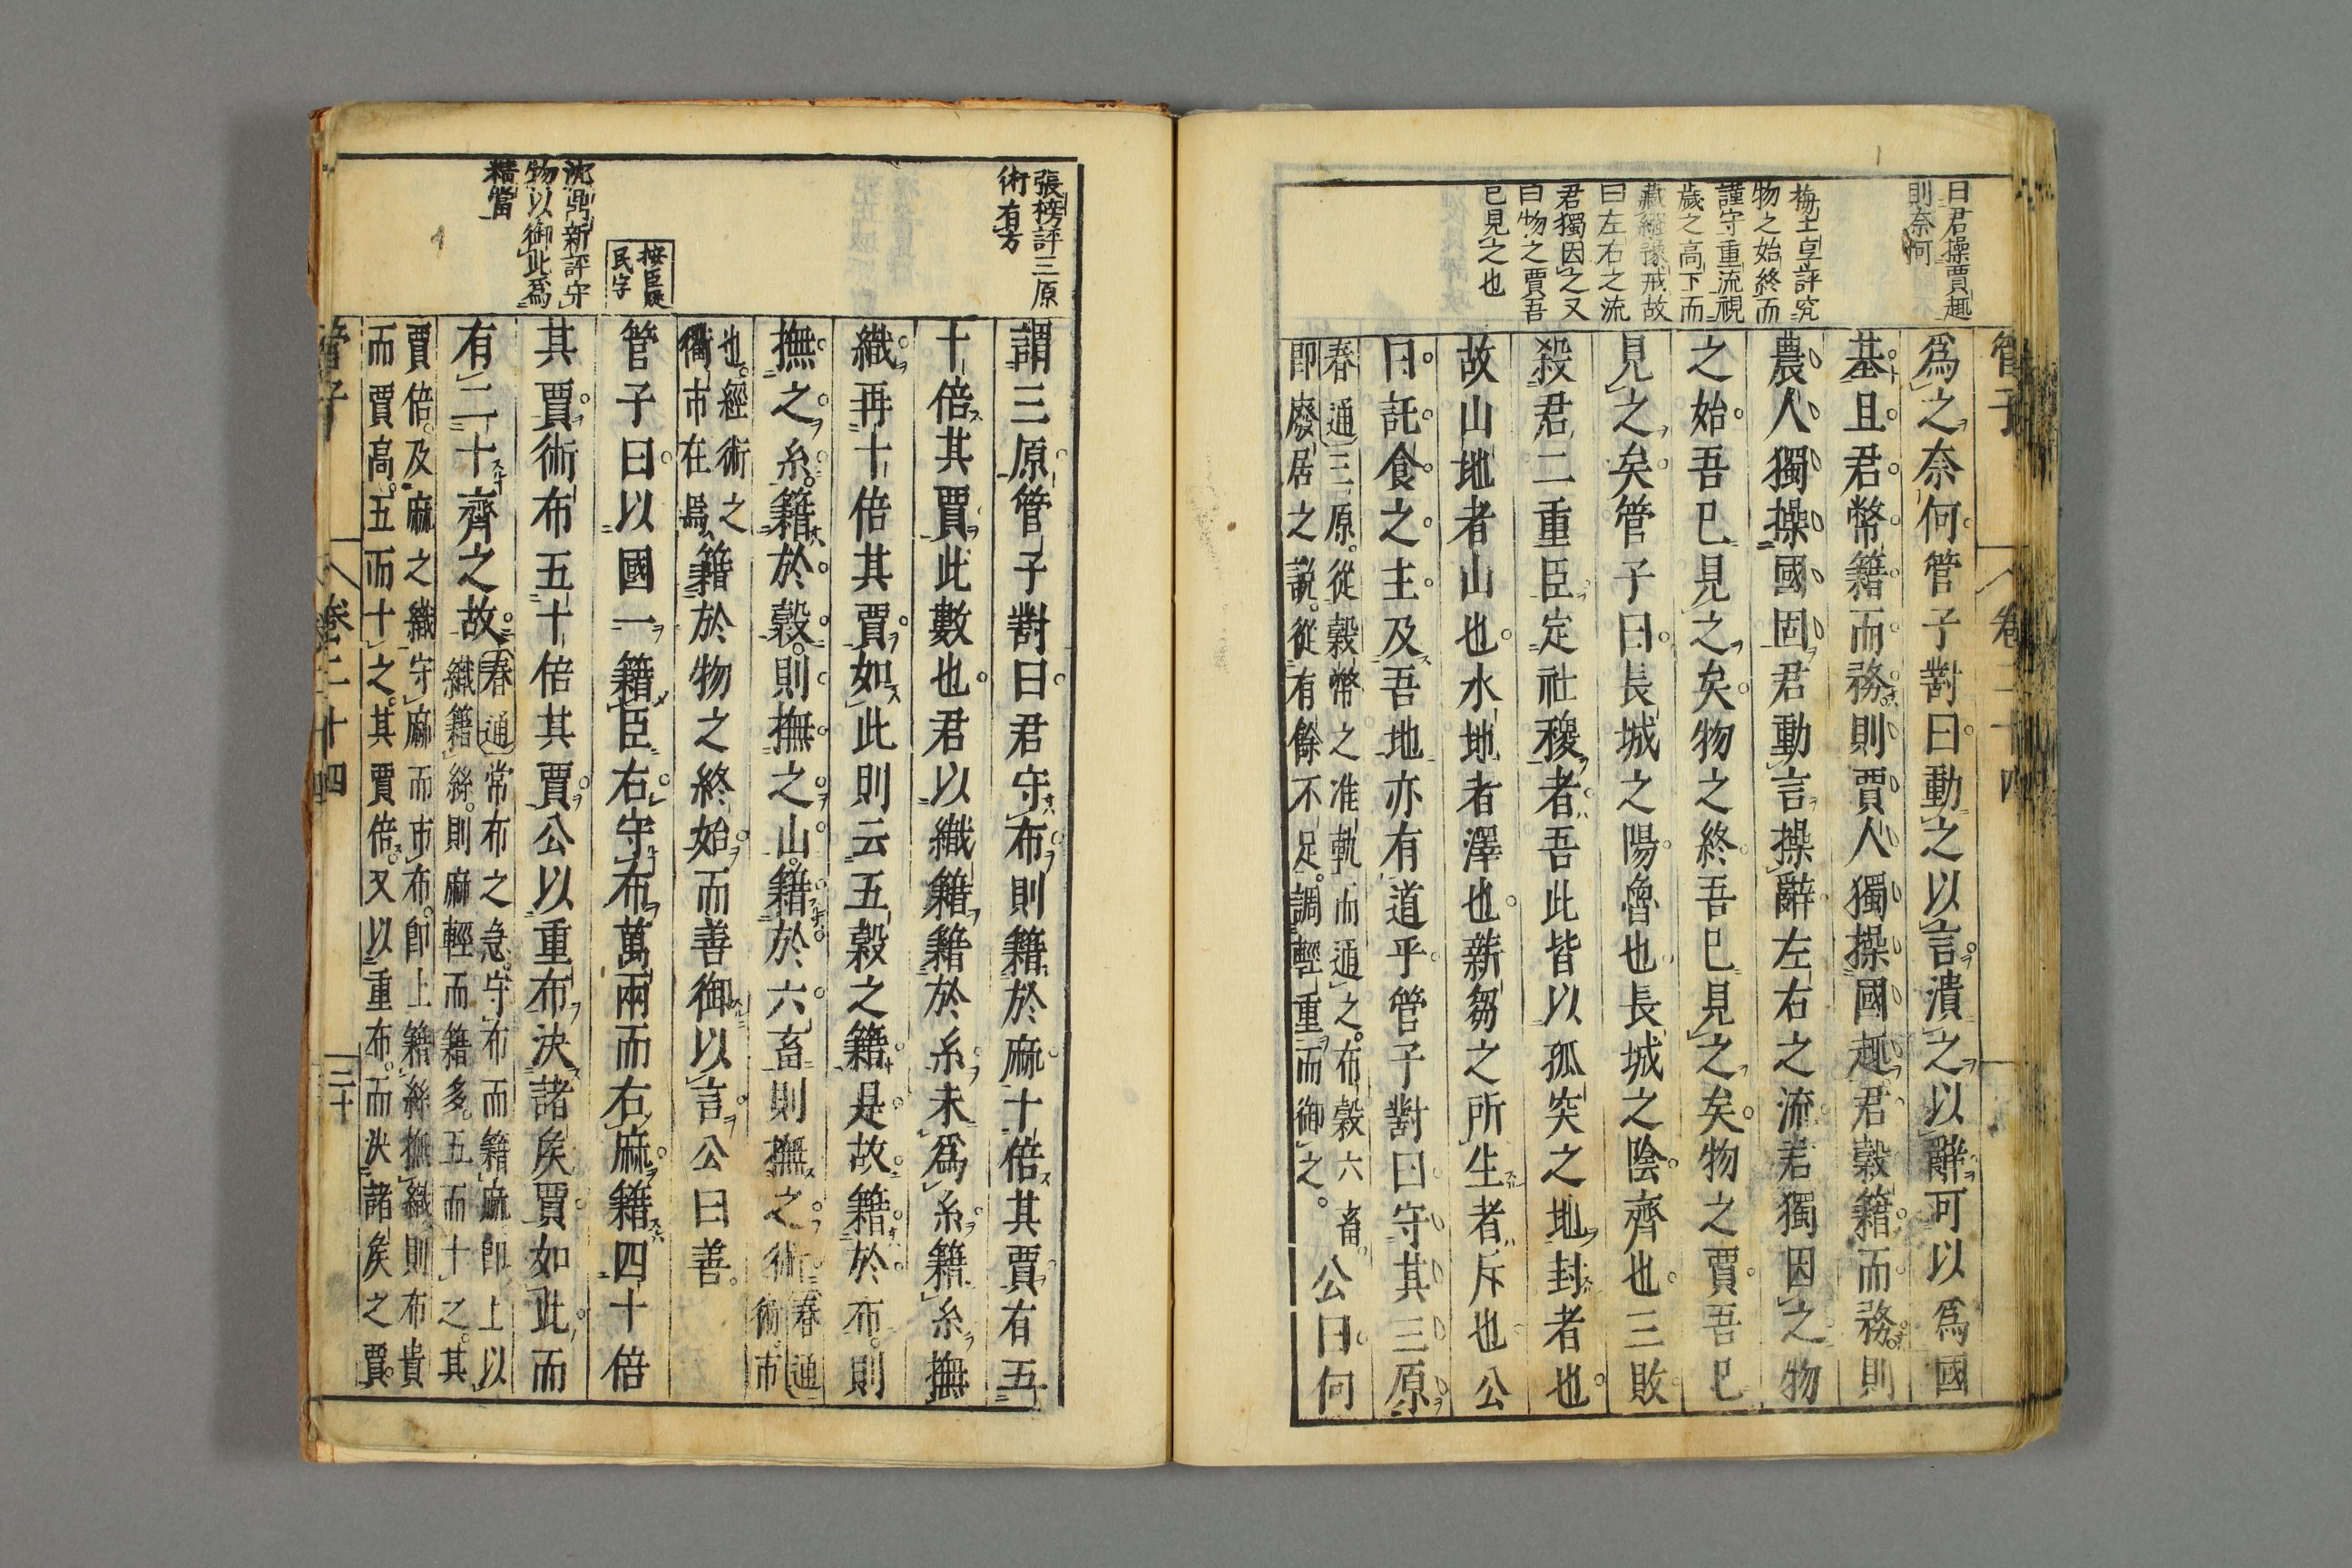 管子
卷二十四
曰君操賈趣
則奈何
梅士享評究
物之始終而
謹守重流視
歲之高下而
藏繦豫戒故
曰左右之流
君獨因之又
曰物之賈吾
已見之也
爲之奈何管子對曰動之以言潰之以辭可以爲國
基且君幣籍而務則賈人獨操國趣君穀籍而務則
農人獨操國固君動言操辭左右之流君獨因之物
之始吾已見之矣物之終吾已見之矣物之賈吾已
見之矣管子曰長城之陽魯也長城之陰齊也三敗
殺君二重臣定社稷者吾此皆以孤突之地封者也
故山地者山也水地者澤也薪芻之所生者斥也公
曰託食之主及吾地亦有道乎管子對曰守其三原
春通三原從穀幣之准軌而通之布穀六畜
即廢居之說從有餘不足調輕重而御之
公曰何
張榜評三原
術有方
按臣疑
民字
沈鼎新評守
物以御此爲
籍當
謂三原管子對曰君守布則籍於麻十倍其賈有五
十倍其賈此數也君以織籍籍於糸未爲糸籍糸撫
織再十倍其賈如此則云五穀之籍是故籍於布則
撫之糸籍於穀則撫之山籍於六畜則撫之術春通術市
也經術之
衢市在焉
籍於物之終始而善御以言公曰善
管子曰以國一籍臣右守布萬兩而右麻籍四十倍
其賈術布五十倍其賈公以重布決諸矦賈如此而
有二十齊之故
春通常布之急守布而籍麻即上以
織籍絲則麻輕而籍多五而十之其
賈倍及麻之織守麻而市布即上籍絲撫織則布貴
而賈高五而十之其賈倍又以重布而決諸矦之賈
管子
卷二十四
三十